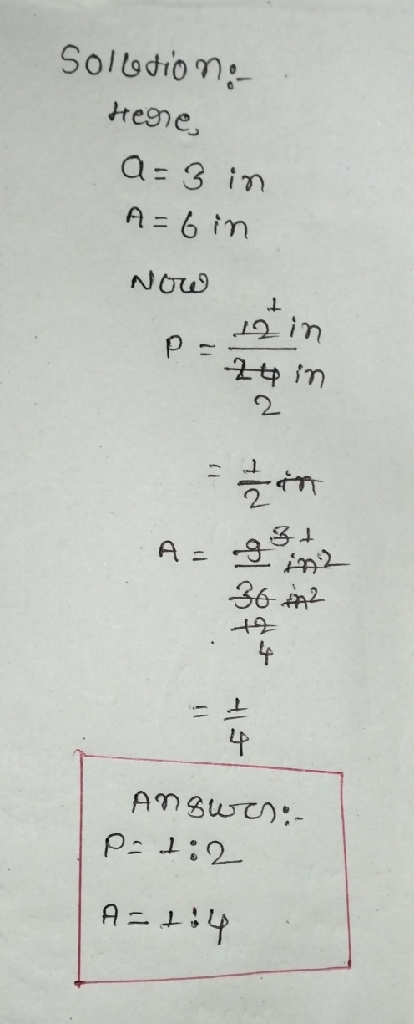 Solution:-
Here,
a = 3 in
A = 6 in
Now
1
P = 12 in
24 in
2
= 1/2 in
A = 9 3 1 in2
36 in2
12
4
= 1/4
Answer:-
P = 1:2
A = 1:4